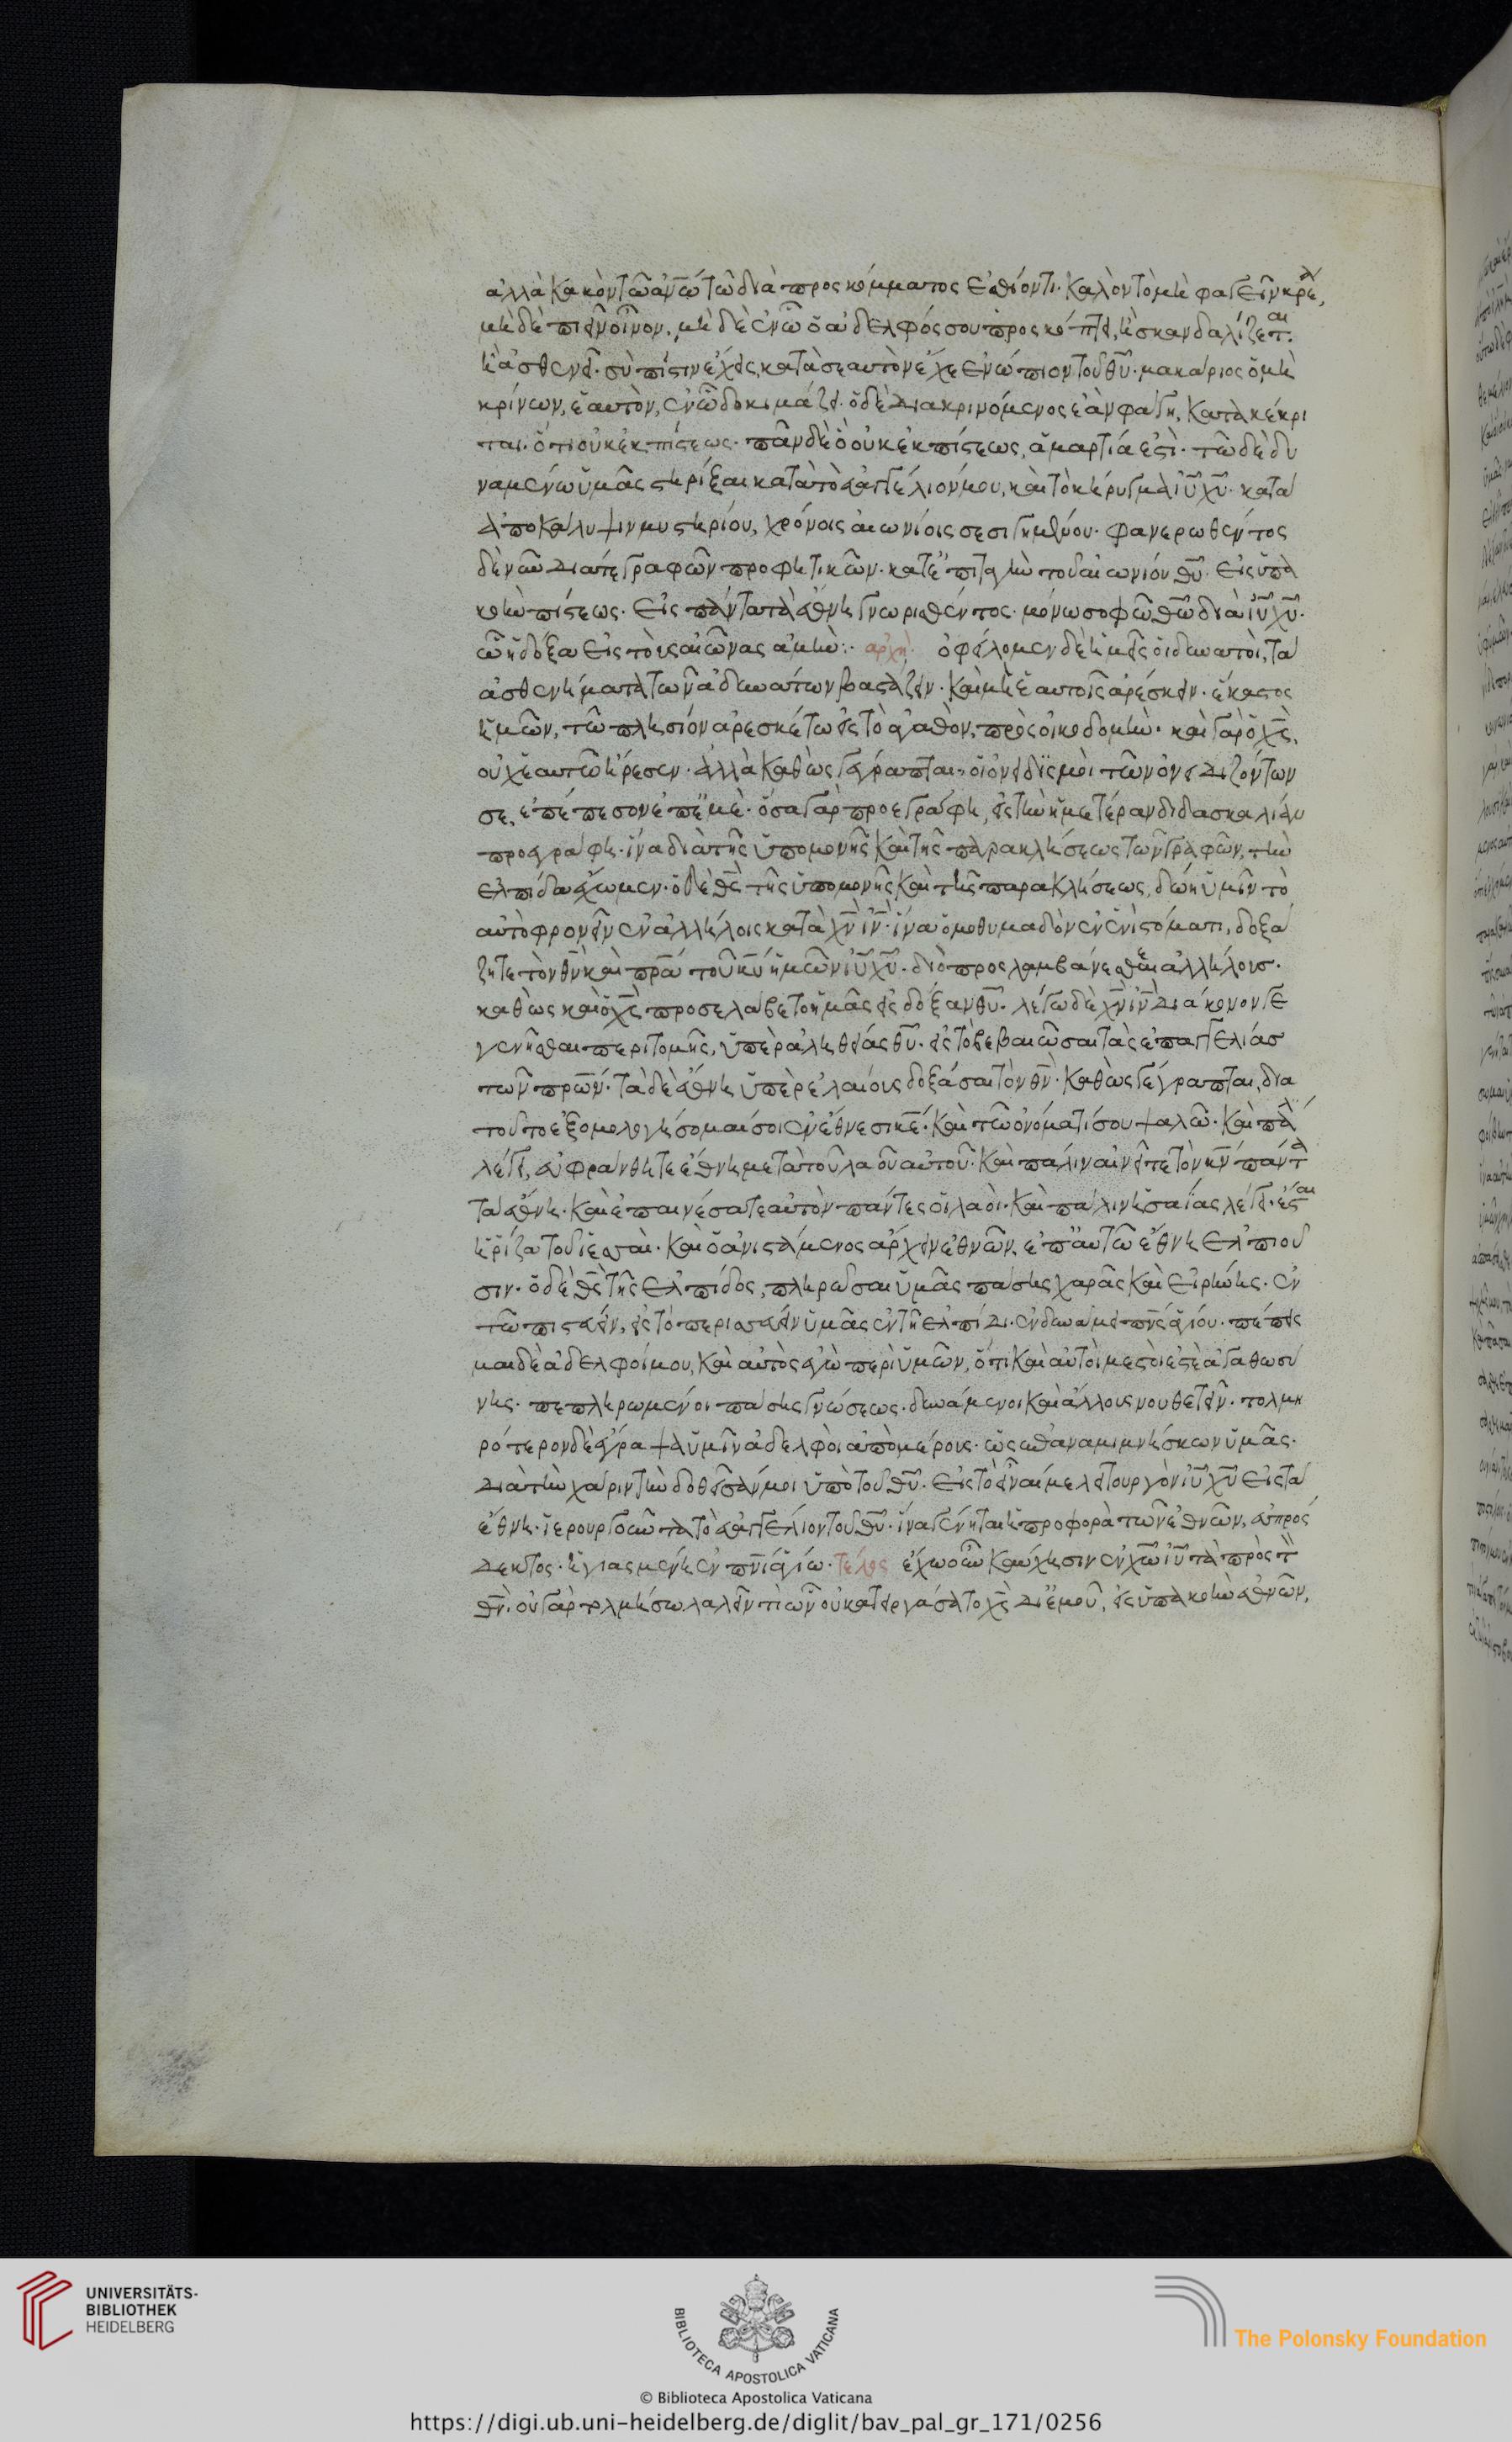 ἀλλὰ κακὸν τῶ ἀν̅ω τῶ διὰ προσκόμματος ἐσθίοντι· καλὸν τὸ μὴ φαγεῖν κρέα,
μὴ δὲ πιεῖν οἶνον, μὴ δὲ ἐν ὧ ὁ ἀδελφός σου προσκόπτει, ἢ σκανδαλίζεται·
ἢ ἀσθενεῖ· σὺ πίστιν ἔχεις, κατὰ σεαυτὸν ἔχε ἐνώπιον τοῦ θ̅υ· μακάριος ὁ μὴ
κρίνων, ἑαυτὸν, ἐν ὧ δοκιμάζει· ὁ δὲ διακρινόμενος ἐὰν φάγη, κατακέκρι
ται· ὅτι οὐκ ἐκ πίστεως· πᾶν δὲ ὃ οὐκ ἐκ πίστεως, ἁμαρτία ἐστὶ· τῶ δὲ δυ
ναμένω ὑμᾶς στηρίξαι κατὰ τὸ εὐαγγέλιόν μου, καὶ τὸ κήρυγμα ι̅υ χ̅υ· κατὰ
ἀποκάλυψιν μυστηρίου, χρόνοις αἰωνίοις σεσιγημένου· φανερωθέντος
δὲ νῦν διά τε γραφῶν προφητικῶν· κατ' ἐπιταγὴν τοῦ αἰωνίου θ̅υ· εἰς ὑπα
κοὴν πίστεως· εἰς πάντα τὰ ἔθνη γνωρισθέντος· μόνω σοφῶ θ̅ω διὰ ι̅υ χ̅υ·
ὧ ἡ δόξα εἰς τοὺς αἰῶνας ἀμήν:· ἀρχὴ· ὀφείλομεν δὲ ἡμεῖς οἱ δυνατοὶ, τὰ
ἀσθενήματα τῶν ἀδυνάτων βαστάζειν· καὶ μὴ ἑαυτοῖς ἀρέσκειν· ἕκαστος
ἡμῶν, τῶ πλησίον ἀρεσκέτω εἰς τὸ ἀγαθὸν, πρὸς οἰκοδομὴν· καὶ γὰρ ὁ χ̅ς,
οὐχ ἑαυτῶ ἤρεσεν· ἀλλὰ καθὼς γέγραπται· οἱ ὀνειδισμοὶ τῶν ὀνειδιζόντων
σε, ἐπέπεσον ἐπ' ἐμὲ· ὅσα γὰρ προεγράφη, εἰς τὴν ἡμετέραν διδασκαλίαν
προεγράφη· ἵνα διὰ τῆς ὑπομονῆς καὶ τῆς παρακλήσεως τῶν γραφῶν, τὴν
ἐλπίδα ἔχωμεν· ὁ δὲ θ̅ς τῆς ὑπομονῆς καὶ τῆς παρακλήσεως, δώη ὑμῖν τὸ
αὐτὸ φρονεῖν ἐν ἀλλήλοις κατὰ χ̅ν ι̅ν· ἵνα ὁμοθυμαδὸν ἐν ἑνὶ στόματι, δοξά
ζητε τὸν θ̅ν καὶ π̅ρα τοῦ κ̅υ ἡμῶν ι̅υ χ̅υ· διὸ προσλαμβάνεσθαι ἀλλήλους·
καθὼς καὶ ὁ χ̅ς προσελάβετο ἡμᾶς εἰς δόξαν θ̅υ· λέγω δὲ χ̅ν ι̅ν διάκονον γε
γενῆσθαι περιτομῆς, ὑπὲρ ἀληθείας θ̅υ· εἰς τὸ βεβαιῶσαι τὰς ἐπαγγελίας
τῶν π̅ρων· τὰ δὲ ἔθνη ὑπὲρ ἐλαίους δοξάσαι τὸν θ̅ν· καθὼς γέγραπται, διὰ
τοῦτο ἐξομολογήσομαί σοι ἐν ἔθνεσι κ̅ε· καὶ τῶ ὀνόματί σου ψαλῶ· καὶ πάλιν
λέγει, εὐφράνθητε ἔθνη μετὰ τοῦ λαοῦ αὐτοῦ· καὶ πάλιν αἰνεῖτε τὸν κ̅ν πάντα
τὰ ἔθνη· καὶ ἐπαινέσατε αὐτὸν πάντες οἱ λαοὶ· καὶ πάλιν ἡσαΐας λέγει· ἔσται
ἡ ῥίζα τοῦ ἰεσσαὶ· καὶ ὁ ἀνιστάμενος ἄρχειν ἐθνῶν, ἐπ' αὐτῶ ἔθνη ἐλπιοῦ
σιν· ὁ δὲ θ̅ς τῆς ἐλπίδος, πληρῶσαι ὑμᾶς πάσης χαρᾶς καὶ εἰρήνης· ἐν
τῶ πιστεύειν, εἰς τὸ περισσεύειν ὑμᾶς ἐν τῆ ἐλπίδι· ἐν δυνάμει π̅ν̅ς ἁγίου· πέπεισ
μαι δὲ ἀδελφοί μου, καὶ αὐτὸς ἐγὼ περὶ ὑμῶν, ὅτι καὶ αὐτοὶ μεστοί ἐστε ἀγαθωσύ
νης· πεπληρωμένοι πάσης γνώσεως· δυνάμενοι καὶ ἄλλους νουθετεῖν· τολμη
ρότερον δὲ ἔγραψα ὑμῖν ἀδελφοὶ ἀπὸ μέρους· ὡς ἐπαναμιμνήσκων ὑμᾶς·
διὰ τὴν χάριν τὴν δοθεῖσάν μοι ὑπὸ τοῦ θ̅υ· εἰς τὸ εἶναί με λειτουργὸν ι̅υ χ̅υ εἰς τὰ
ἔθνη· ἱερουργοῦντα τὸ εὐαγγέλιον τοῦ θ̅υ· ἵνα γένηται ἡ προσφορὰ τῶν ἐθνῶν, εὐπρόσ
δεκτος· ἡγιασμένη ἐν π̅ν̅ι ἁγίω· τέλος ἔχω οὖν καύχησιν ἐν χ̅ω ι̅υ τὰ πρὸς τὸν
θ̅ν· οὐ γὰρ τολμήσω λαλεῖν τι ὧν οὐ κατειργάσατο χ̅ς δι' ἐμοῦ, εἰς ὑπακοὴν ἐθνῶν,
UNIVERSITÄTS-
BIBLIOTHEK
HEIDELBERG
BIBLIOTECA APOSTOLICA VATICANA
The Polonsky Foundation
© Biblioteca Apostolica Vaticana
https://digi.ub.uni-heidelberg.de/diglit/bav_pal_gr_171/0256